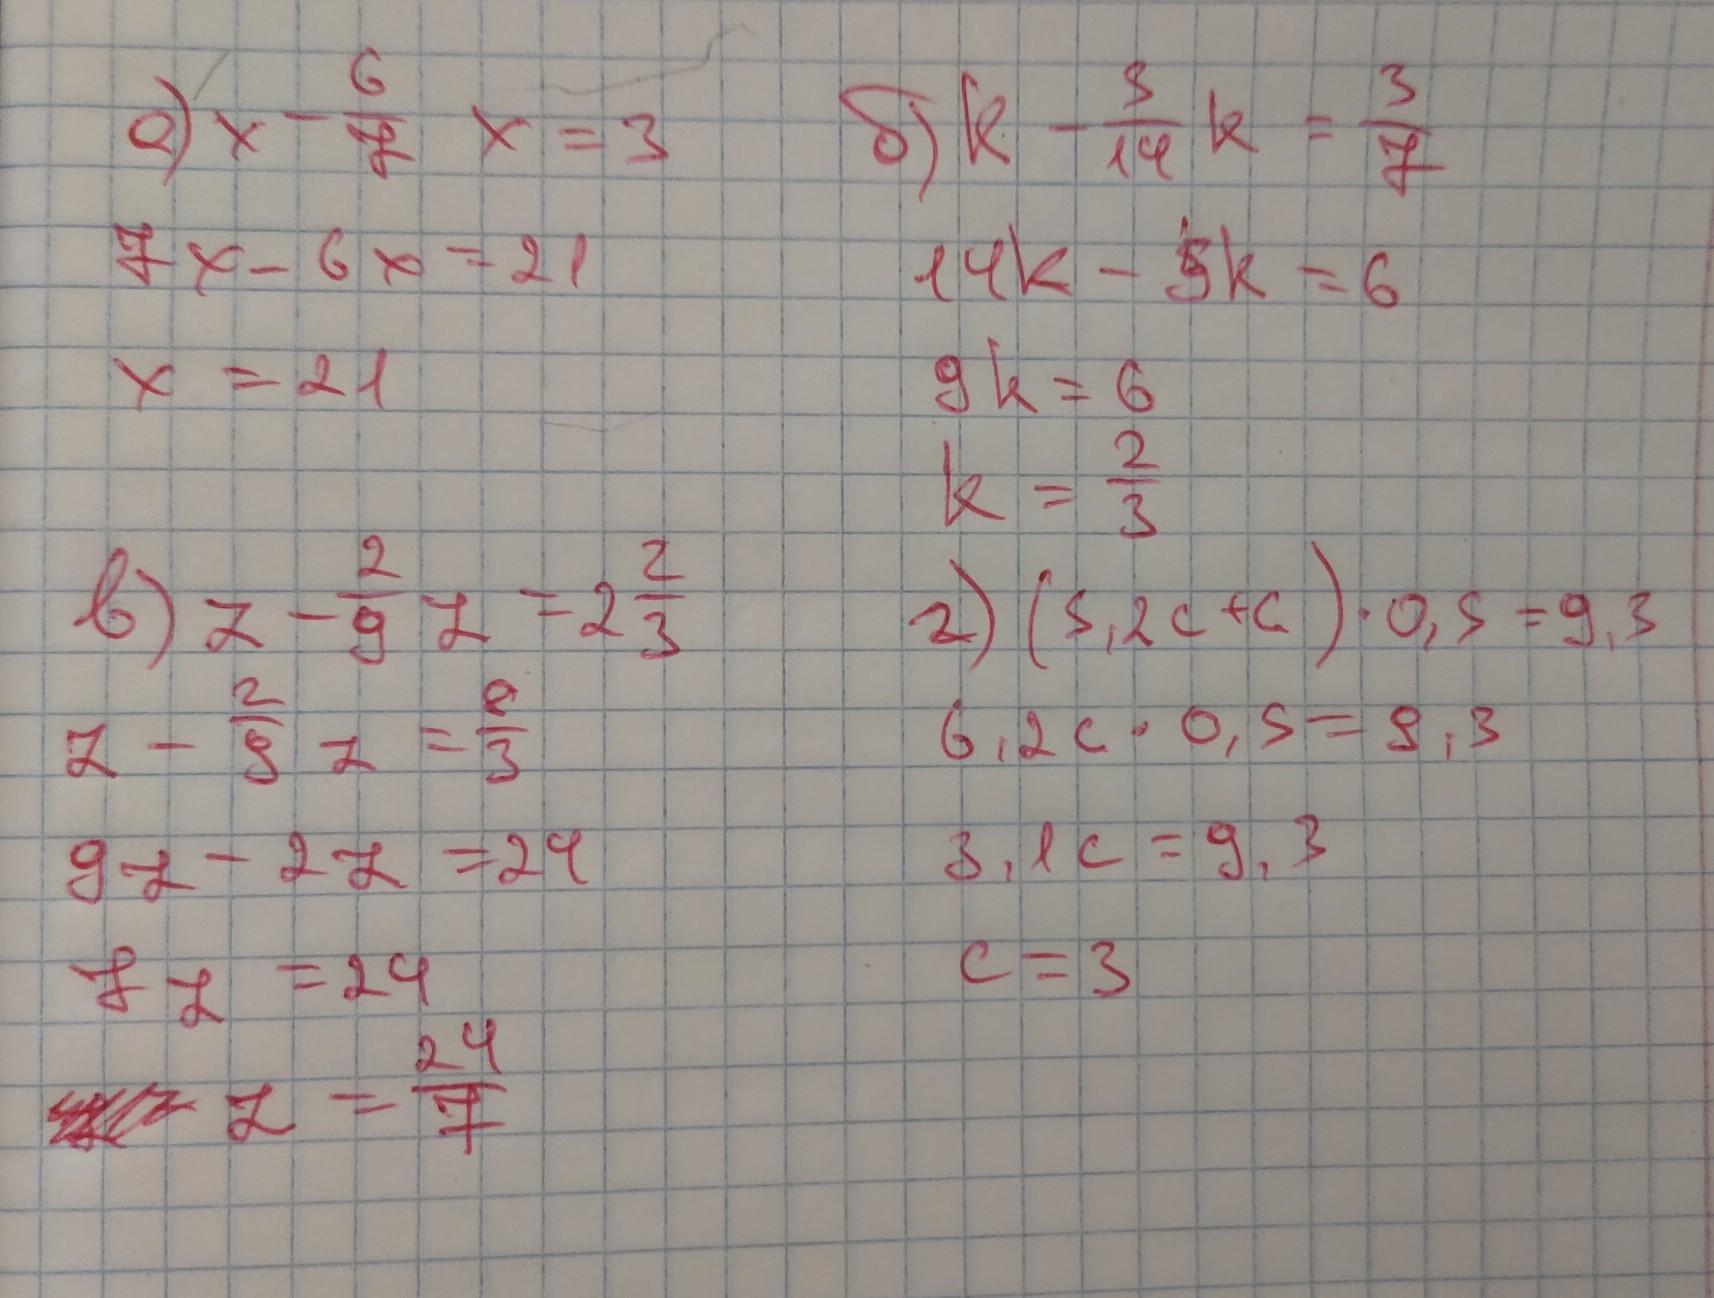 а) x - 6/7 x = 3
7x - 6x = 21
x = 21
б) k - 5/14 k = 3/7
14k - 5k = 6
9k = 6
k = 2/3
в) z - 2/9 z = 2 2/3
z - 2/9 z = 8/3
9z - 2z = 24
7z = 24
z = 24/7
г) (5,2c + c) · 0,5 = 9,3
6,2c · 0,5 = 9,3
3,1c = 9,3
c = 3